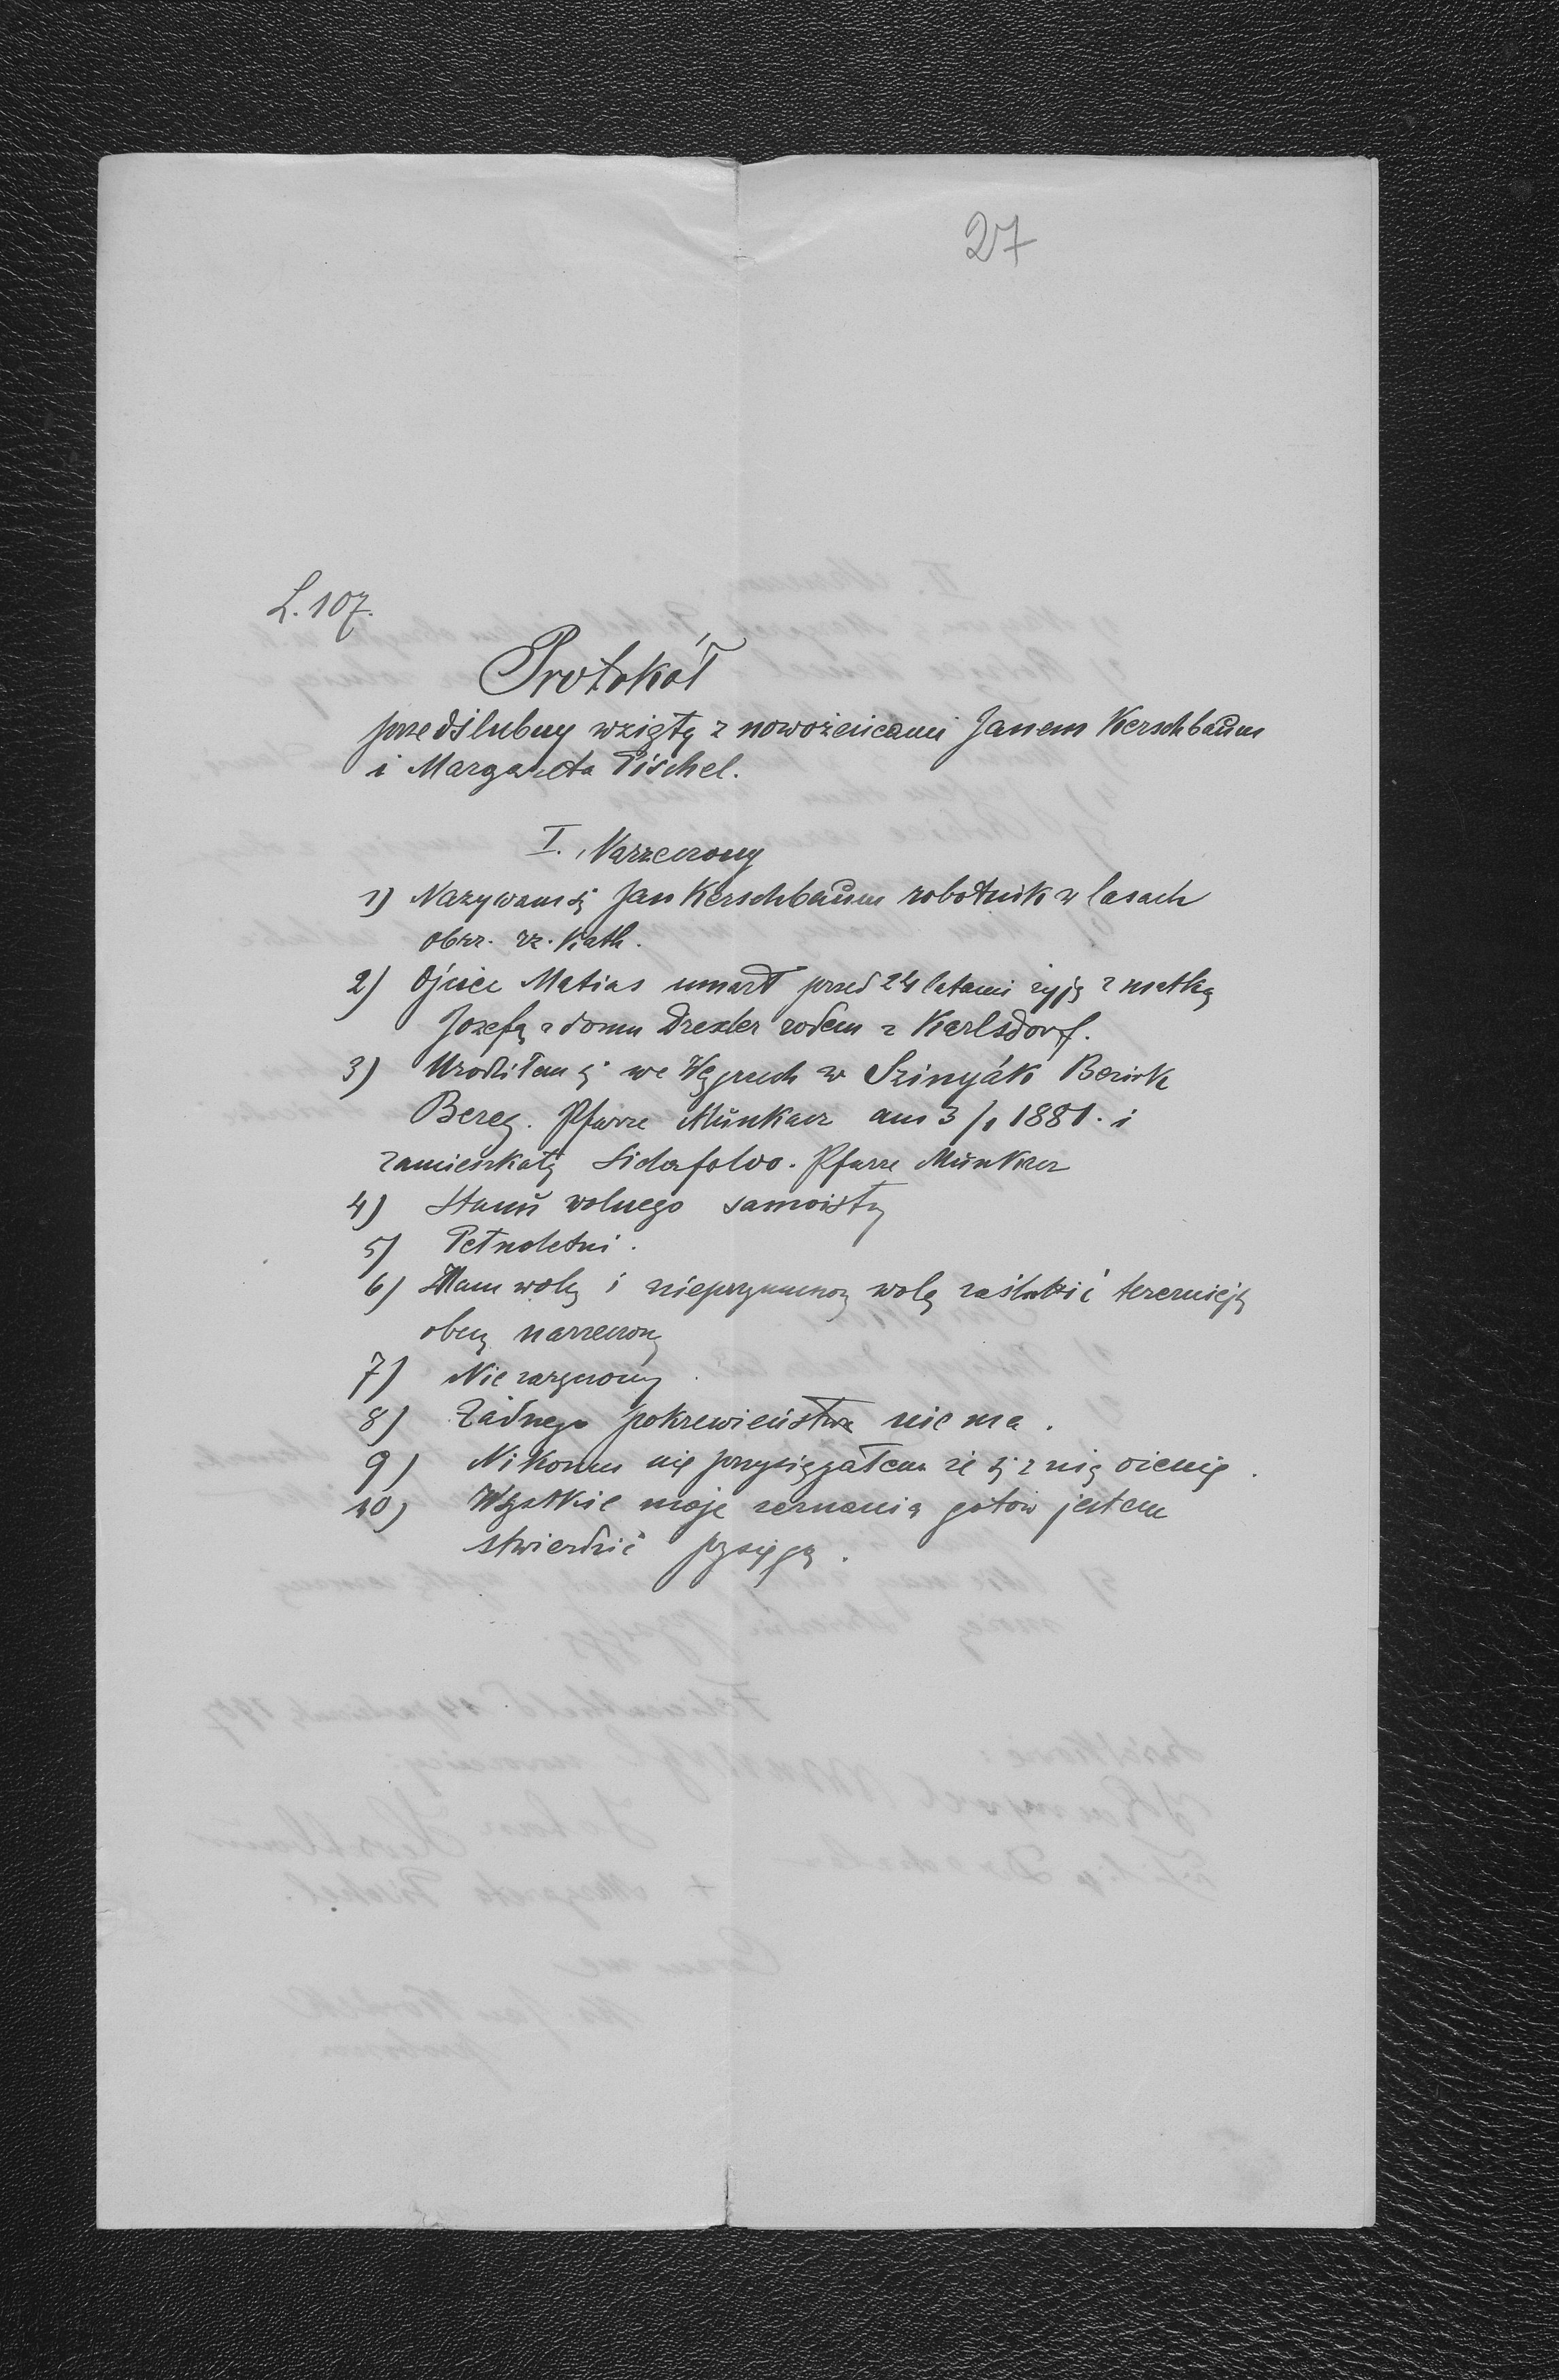 27
L. 107.
Protokół
przedślubny wzięty z nowożeńcami Janem Kerschbaum
i Margareta Pischel.
I. Narzeczony
1) Nazywam się Jan Kerschbaum robotnik w lasach
obrz. rz. kath.
2) Ojciec Matias umarł przed 24 latami żyję z matką
Jozefą z domu Drexler rodem z Karlsdorf.
3) Urodziłem się we Węgrzech w Szinyák Bezirk
Bereg. Pfarre Munkacz am 3/1 1881. i
zamieszkały Pfarre Munkacz
4) Stanu wolnego samoistny
5) Pełnoletni.
6) Mam wolę i nieprzymuszoną wolę zaślubić terazniejszą
obecną narzeczoną
7)
8) Żadnego pokrewieństwa nie ma.
9) Nikomu nie przysięgałem że się z nią ożenię.
10) Wszystkie moje zeznania gotów jestem
stwierdzić przysięgą.